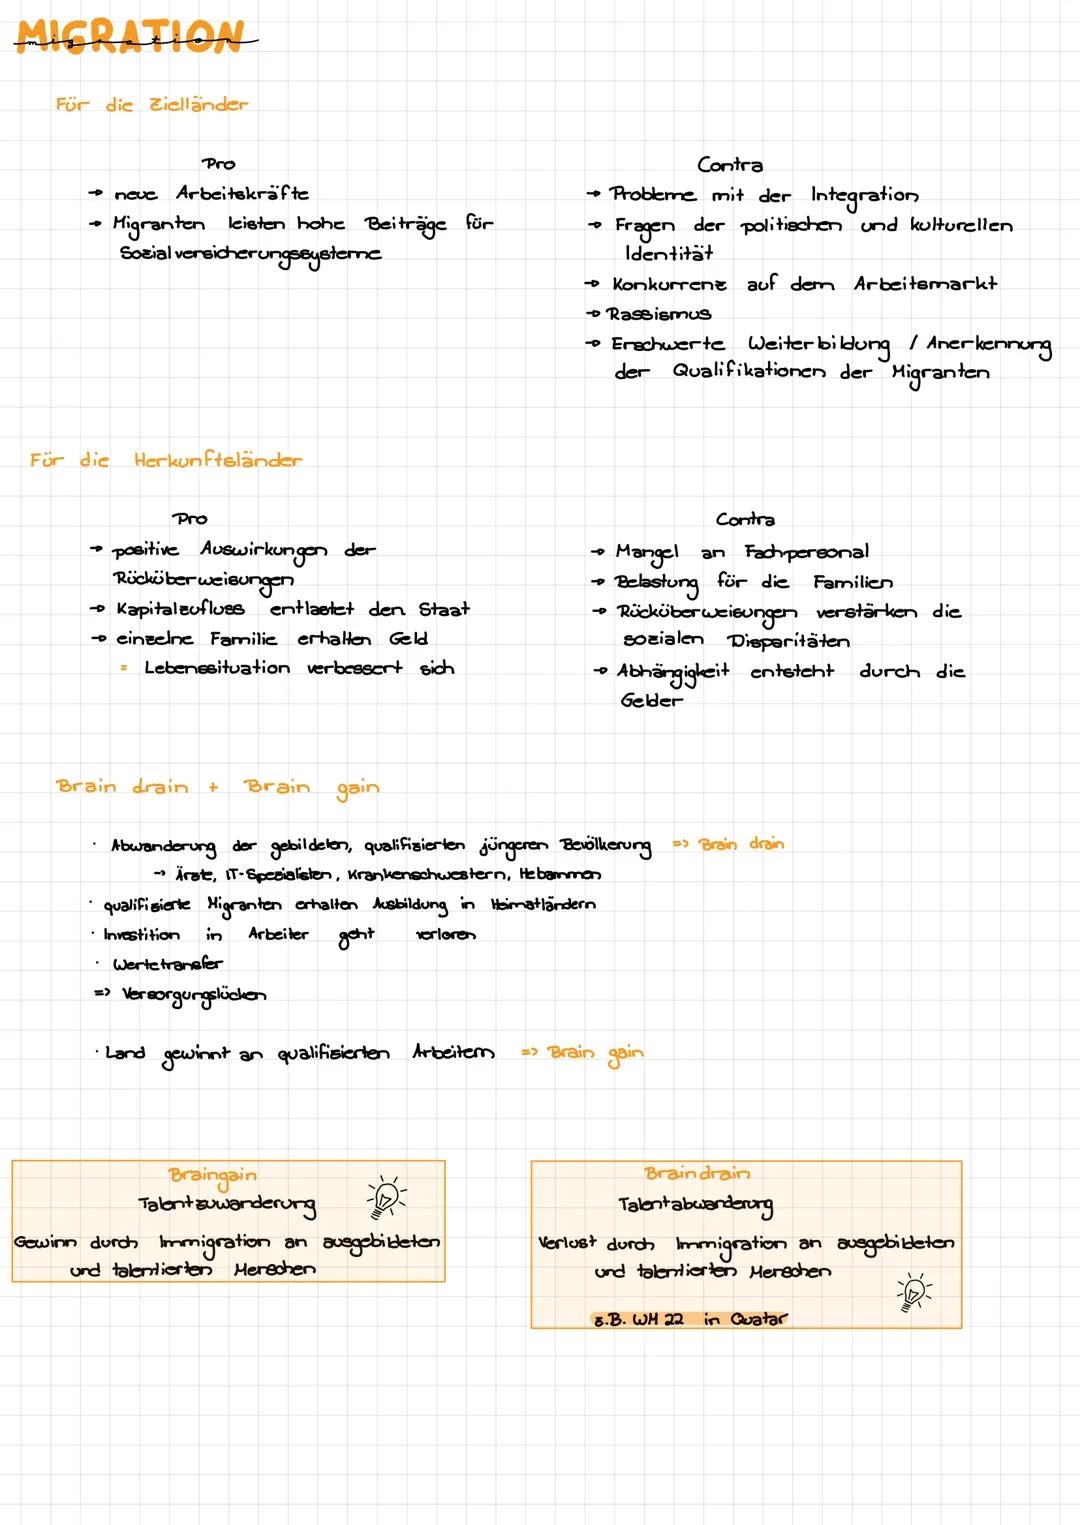 MIGRATION
migration
Für die Zielländer
Pro
→ neue Arbeitskräfte
→ Migranten leisten hohe Beiträge für
Sozialversicherungssysteme
Contra
→ Probleme mit der Integration
→ Fragen der politischen und kulturellen
Identität
→ Konkurrenz auf dem Arbeitsmarkt
→ Rassismus
→ Erschwerte Weiterbildung / Anerkennung
der Qualifikationen der Migranten
Für die Herkunftsländer
Pro
→ positive Auswirkungen der
Rücküberweisungen
→ Kapitalzufluss entlastet den Staat
→ einzelne Familie erhalten Geld
= Lebenssituation verbessert sich
Contra
→ Mangel an Fachpersonal
→ Belastung für die Familien
→ Rücküberweisungen verstärken die
sozialen Disparitäten
→ Abhängigkeit entsteht durch die
Gelder
Brain drain + Brain gain
· Abwanderung der gebildeten, qualifizierten jüngeren Bevölkerung => Brain drain
→ Ärzte, IT-Spezialisten, Krankenschwestern, Hebammen
· qualifizierte Migranten erhalten Ausbildung in Heimatländern
· Investition in Arbeiter geht verloren
· Wertetransfer
=> Versorgungslücken
· Land gewinnt an qualifizierten Arbeitern => Brain gain
Braingain
Talentzuwanderung
Gewinn durch Immigration an ausgebildeten
und talentierten Menschen
Braindrain
Talentabwanderung
Verlust durch Immigration an ausgebildeten
und talentierten Menschen
z.B. WM 22 in Quatar